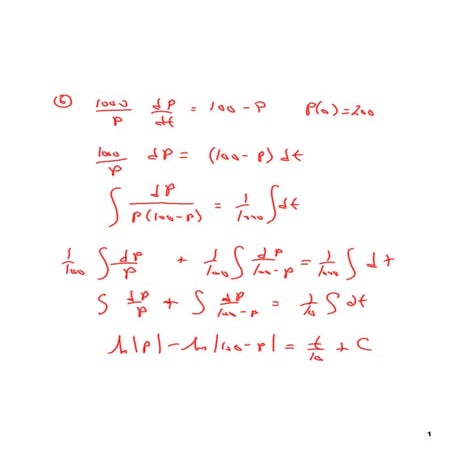 ⑥ 1000/P dP/dt = 100 - P P(0)=200
1000/P dP = (100 - P) dt
∫ dP/P(100-P) = 1/1000 ∫dt
1/100 ∫ dP/P + 1/100 ∫ dP/100-P = 1/1000 ∫ dt
∫ dP/P + ∫ dP/100-P = 1/10 ∫ dt
ln|P| - ln|100-P| = t/10 + C
1